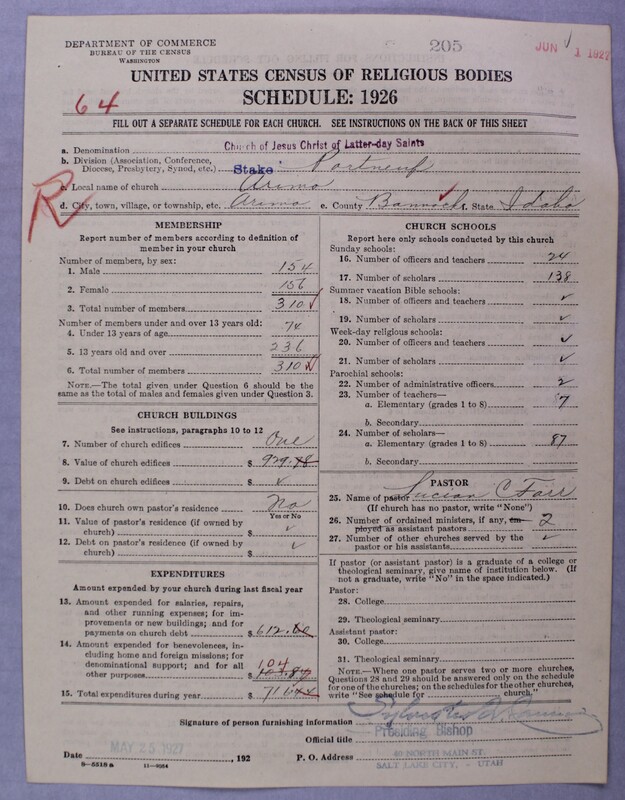 DEPARTMENT OF COMMERCE
BUREAU OF THE CENSUS
WASHINGTON
205
JUN 1 1927
UNITED STATES CENSUS OF RELIGIOUS BODIES
64
SCHEDULE: 1926
FILL OUT A SEPARATE SCHEDULE FOR EACH CHURCH. SEE INSTRUCTIONS ON THE BACK OF THIS SHEET
a. Denomination Church of Jesus Christ of Latter-day Saints
b. Division (Association, Conference, Diocese, Presbytery, Synod, etc.) Stake Portneuf
c. Local name of church Arimo
R
d. City, town, village, or township, etc. Arimo e. County Bannock f. State Idaho
MEMBERSHIP
Report number of members according to definition of
member in your church
Number of members, by sex:
1. Male 154
2. Female 156
3. Total number of members 310
Number of members under and over 13 years old:
4. Under 13 years of age 74
5. 13 years old and over 236
6. Total number of members 310
NOTE.—The total given under Question 6 should be
the same as the total of males and females given under Question 3.
CHURCH BUILDINGS
See instructions, paragraphs 10 to 12
7. Number of church edifices One
8. Value of church edifices $ 929.48
9. Debt on church edifices $ ✓
10. Does church own pastor's residence? No
Yes or No
11. Value of pastor's residence (if owned by
church) $ ✓
12. Debt on pastor's residence (if owned by
church) $ ✓
EXPENDITURES
Amount expended by church during last fiscal year
13. Amount expended for salaries, repairs,
and other running expenses; for im-
provements or new buildings; and for
payments on church debt $ 612.60
14. Amount expended for benevolences, in-
cluding home and foreign missions; for
denominational support; and for all
other purposes $ 104
15. Total expenditures during year $
CHURCH SCHOOLS
Report here only schools conducted by this church
Sunday schools:
16. Number of officers and teachers 24
17. Number of scholars 138
Summer vacation Bible schools:
18. Number of officers and teachers ✓
19. Number of scholars ✓
Week-day religious schools:
20. Number of officers and teachers ✓
21. Number of scholars ✓
Parochial schools:
22. Number of administrative officers 2
23. Number of teachers—
a. Elementary (grades 1 to 8) 7
b. Secondary
24. Number of scholars—
a. Elementary (grades 1 to 8) 87
b. Secondary
PASTOR
25. Name of pastor Lucian C Farr
(If church has no pastor, write "None")
26. Number of ordained ministers, if any, em-
ployed as assistant pastors 2
27. Number of other churches served by the
pastor or his assistants ✓
If pastor (or assistant pastor) is a graduate of a college or
theological seminary, give name of institution below. (If
not a graduate, write "No" in the space indicated.)
Pastor:
28. College
29. Theological seminary
Assistant pastor:
30. College
31. Theological seminary
NOTE.—Where one pastor serves two or more churches,
Questions 28 and 29 should be answered only on the schedule
for one of the churches; on the schedules for the other churches,
write "See schedule for church."
Signature of person furnishing information Sylvester Q. Cannon
Official title Presiding Bishop
MAY 25 1927
Date , 192 P. O. Address 40 NORTH MAIN ST.
SALT LAKE CITY, - UTAH
9-5518a 11-9064